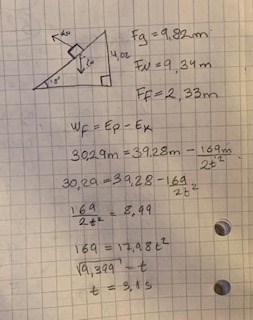 Fg = 9,82m
4,02
FN = 9,34m
18°
Ff = 2,33m
Wf = Ep - Ek
30,29m = 39,28m - 169m/2t²
30,29 = 39,28 - 169/2t²
169/2t² = 8,99
169 = 17,98t²
√9,399 = t
t = 3,1s